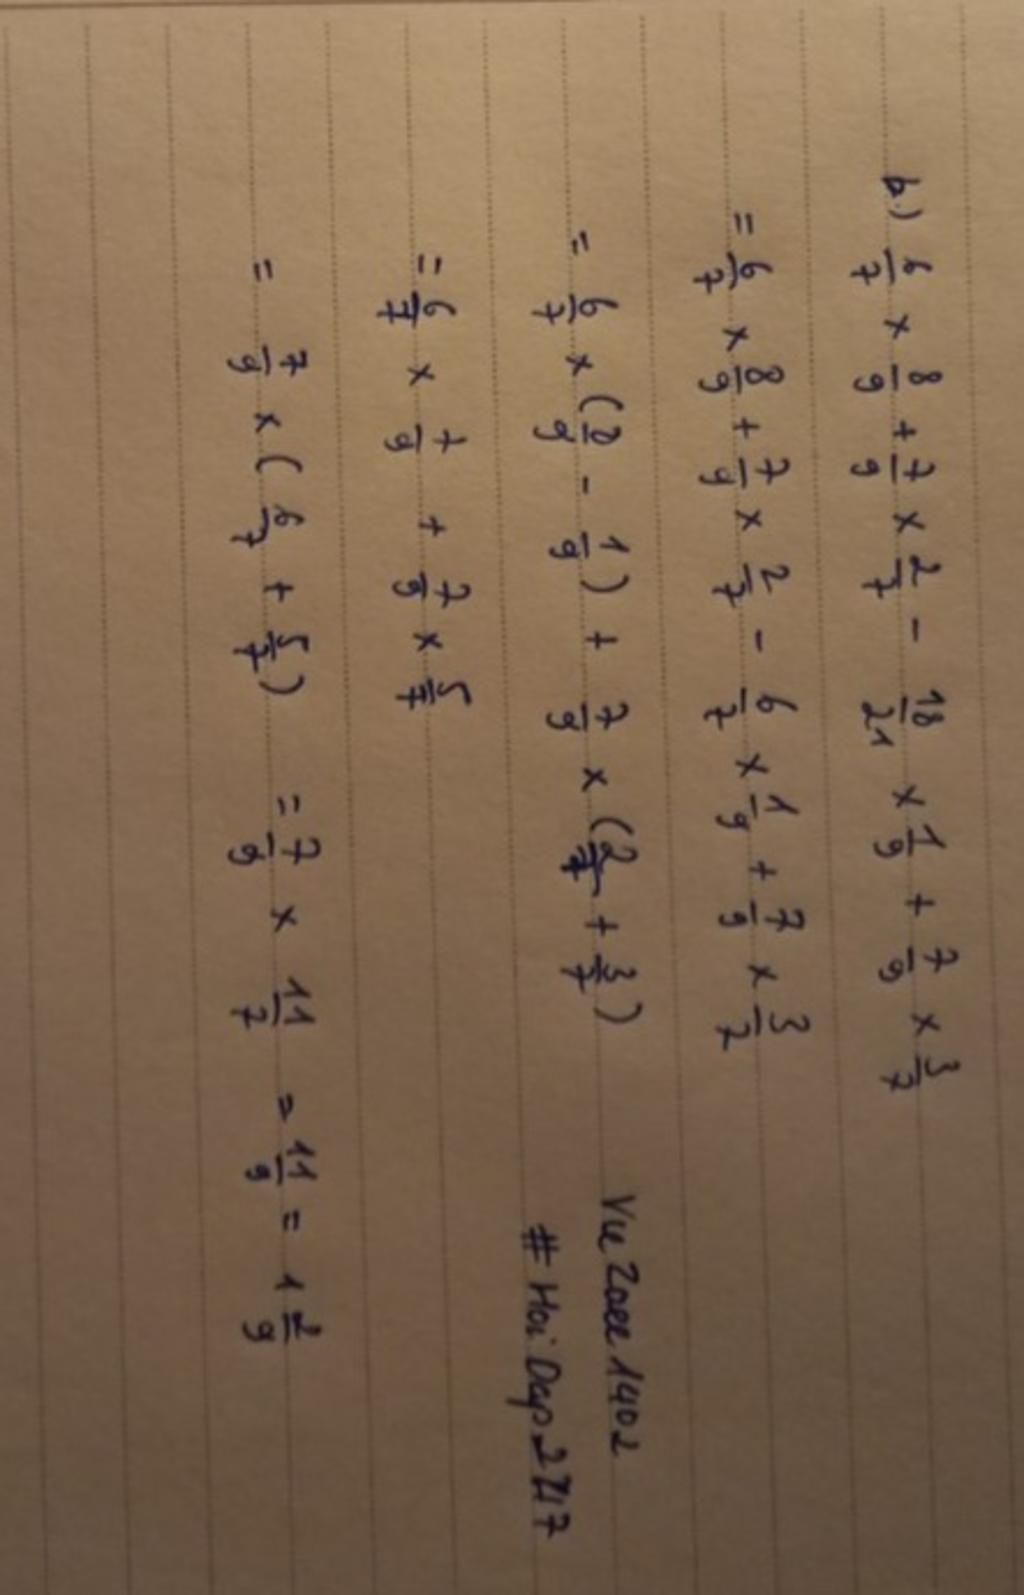 b.) 6/7 × 8/9 + 7/9 × 2/7 - 18/21 × 1/9 + 7/9 × 3/7
= 6/7 × 8/9 + 7/9 × 2/7 - 6/7 × 1/9 + 7/9 × 3/7
= 6/7 × (8/9 - 1/9) + 7/9 × (2/7 + 3/7)
= 6/7 × 7/9 + 7/9 × 5/7
= 7/9 × (6/7 + 5/7) = 7/9 × 11/7 = 11/9 = 1 2/9
# Hoi Dap 247